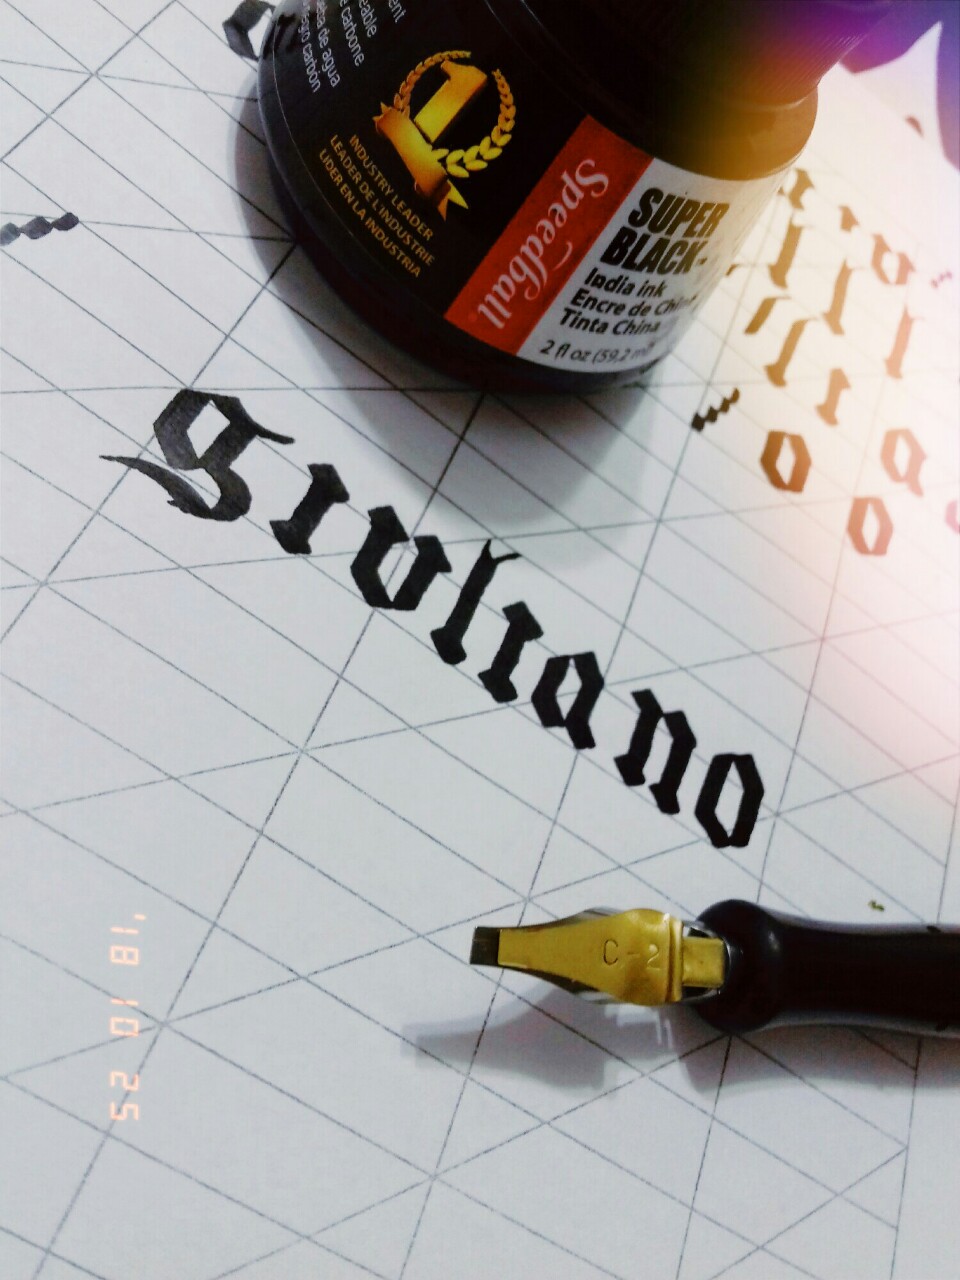 ent
eable
e carbone
lesa de agua
ego carbón
1
INDUSTRY LEADER
LEADER DE L'INDUSTRIE
LIDER EN LA INDUSTRIA
Speedball
SUPER
BLACK
India ink
Encre de Chin
Tinta China
2 fl oz (59.2 ml
Siuliano
C-2
'18 10 25